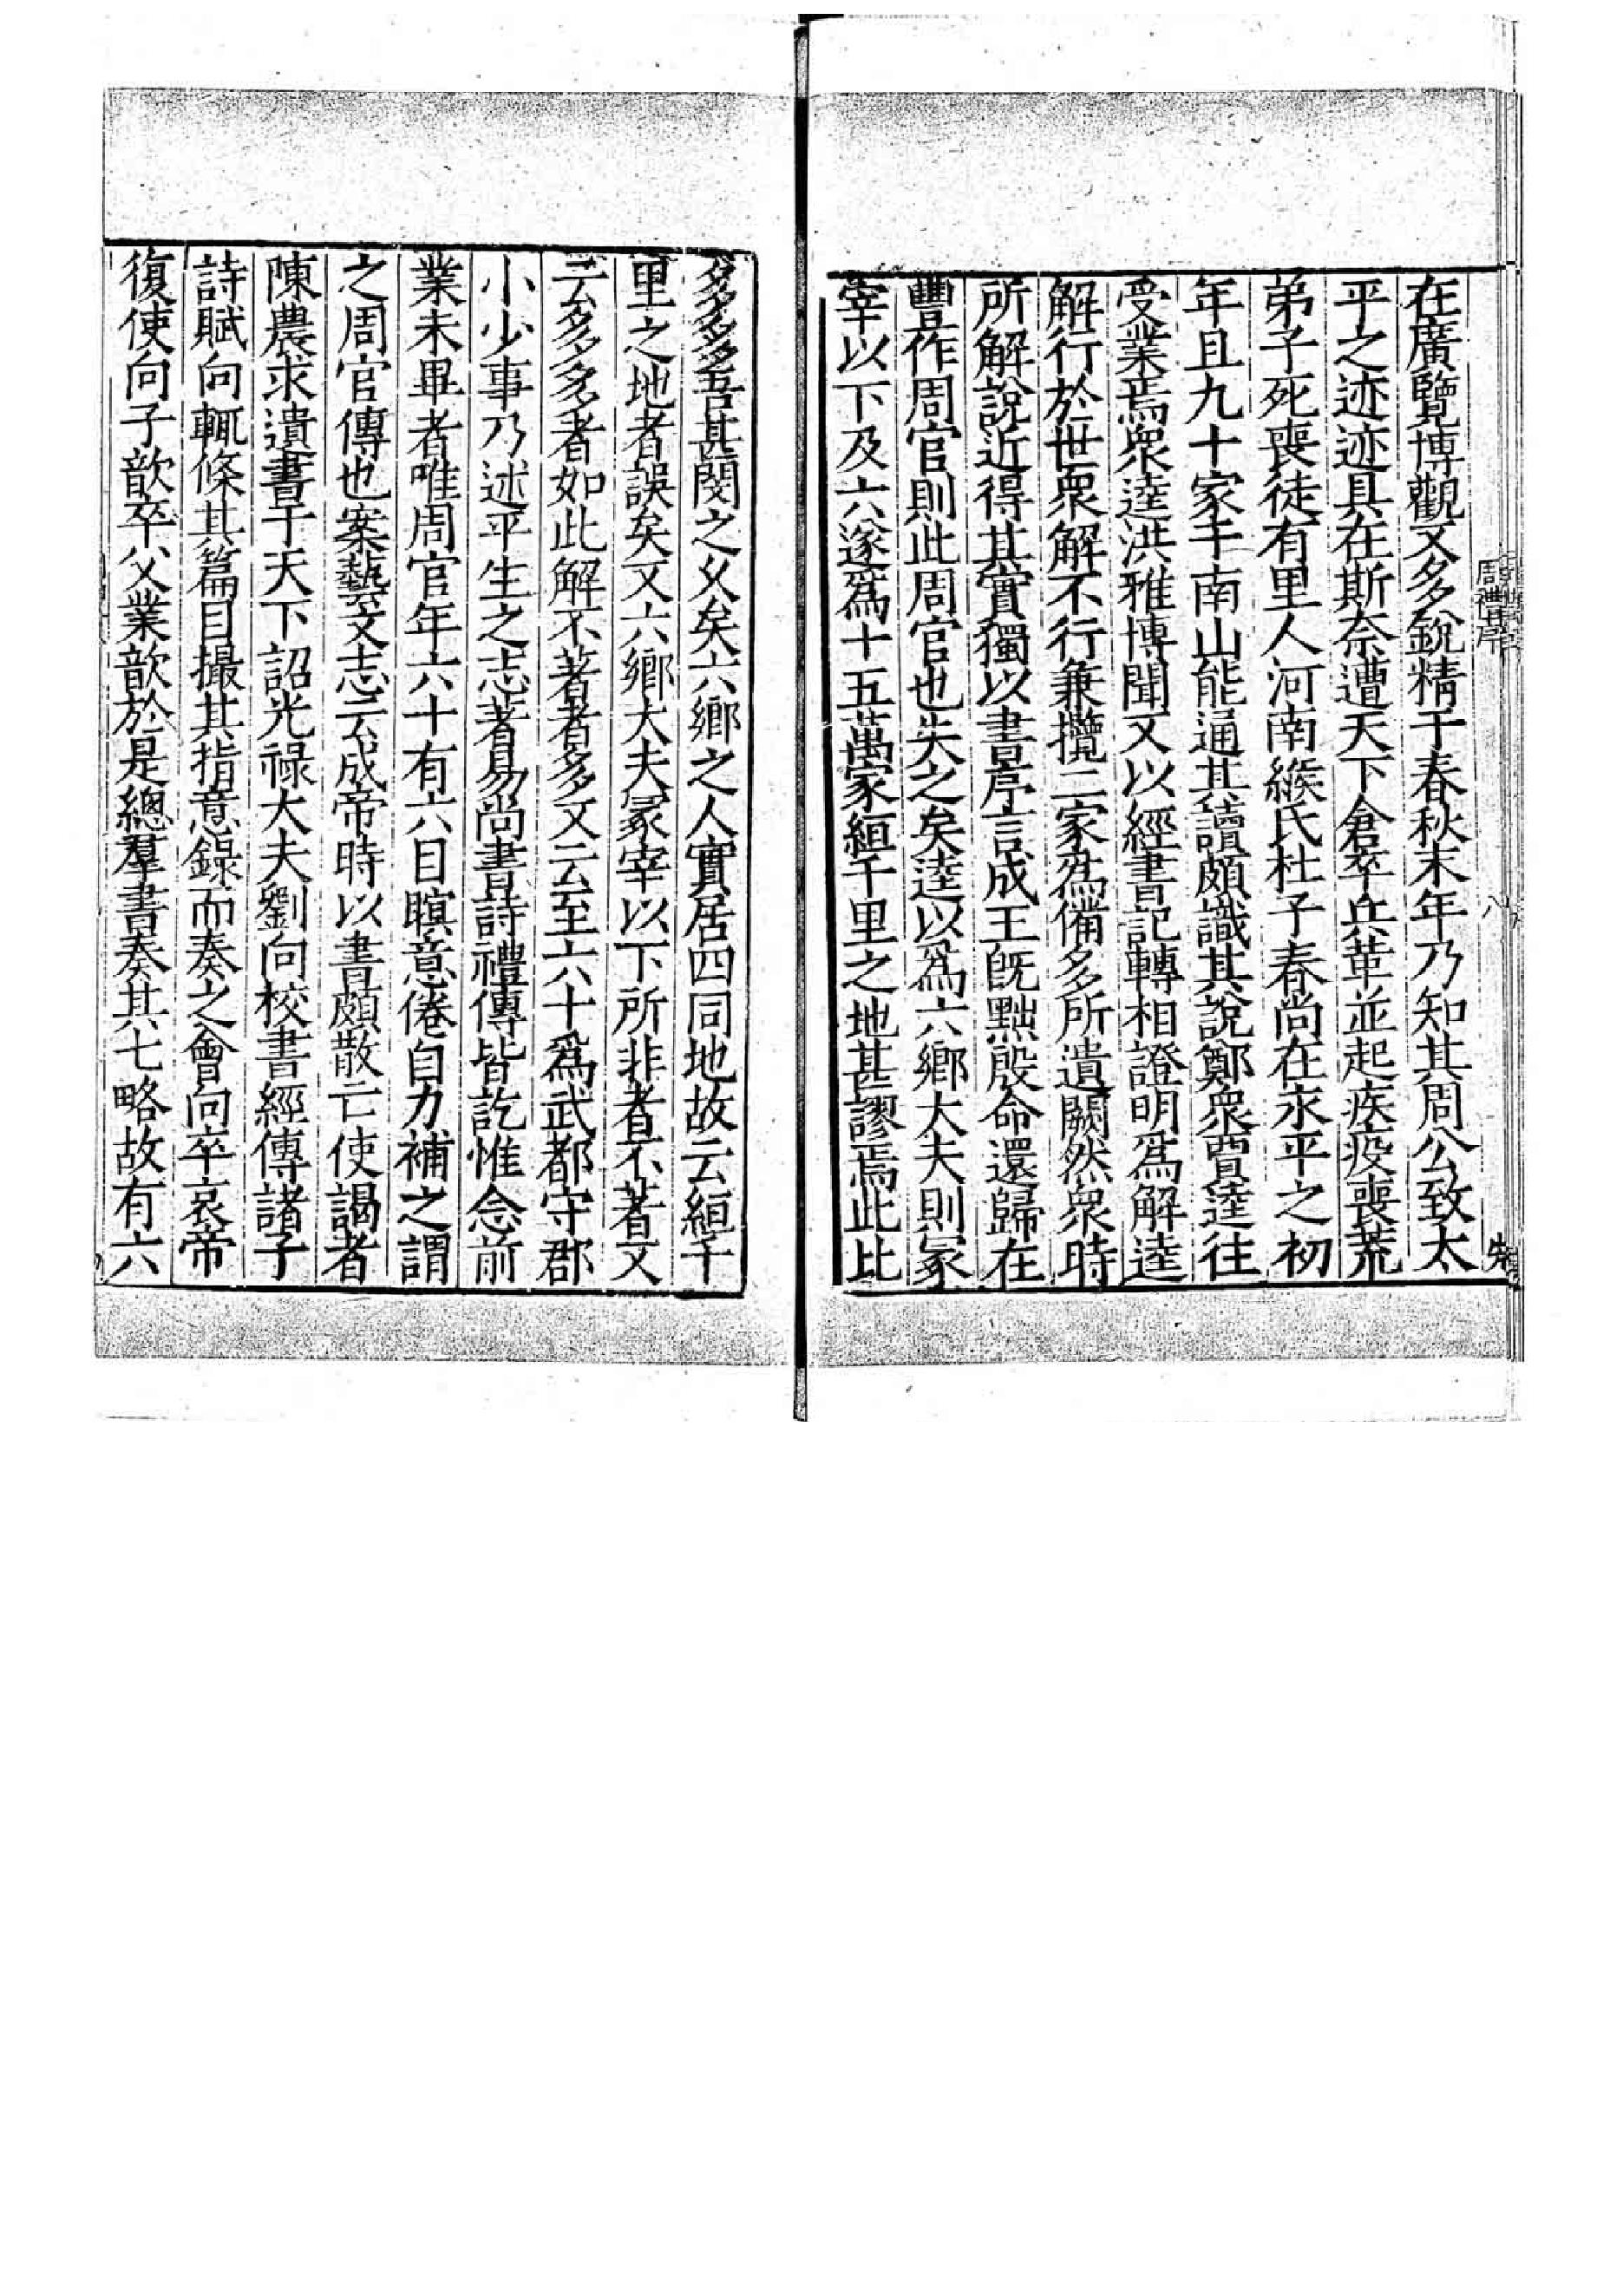 周禮序
八
在廣覽博觀又多銳精于春秋末年乃知其周公致太
平之迹迹具在斯奈遭天下倉卒兵革並起疾疫喪荒
弟子死喪徒有里人河南緱氏杜子春尚在永平之初
年且九十家于南山能通其讀頗識其說鄭眾賈逵往
受業焉眾逵洪雅博聞又以經書記轉相證明爲解逵
解行於世眾解不行兼攬二家爲備多所遺闕然眾時
所解說近得其實獨以書序言成王旣黜殷命還歸在
豐作周官則此周官也失之矣逵以爲六鄉大夫則冢
宰以下及六遂爲十五萬家絙千里之地甚謬焉此比
多多多吾甚閔之久矣六鄉之人實居四同地故云絙千
里之地者誤矣又六鄉大夫冢宰以下所非者不著又
云多多多者如此解不著者多又云至六十爲武都守郡
小少事乃述平生之志著易尚書詩禮傳皆訖惟念前
業未畢者唯周官年六十有六目瞑意倦自力補之謂
之周官傳也案藝文志云成帝時以書頗散亡使謁者
陳農求遺書于天下詔光祿大夫劉向校書經傳諸子
詩賦向輒條其篇目撮其指意錄而奏之會向卒哀帝
復使向子歆卒父業歆於是總羣書奏其七略故有六